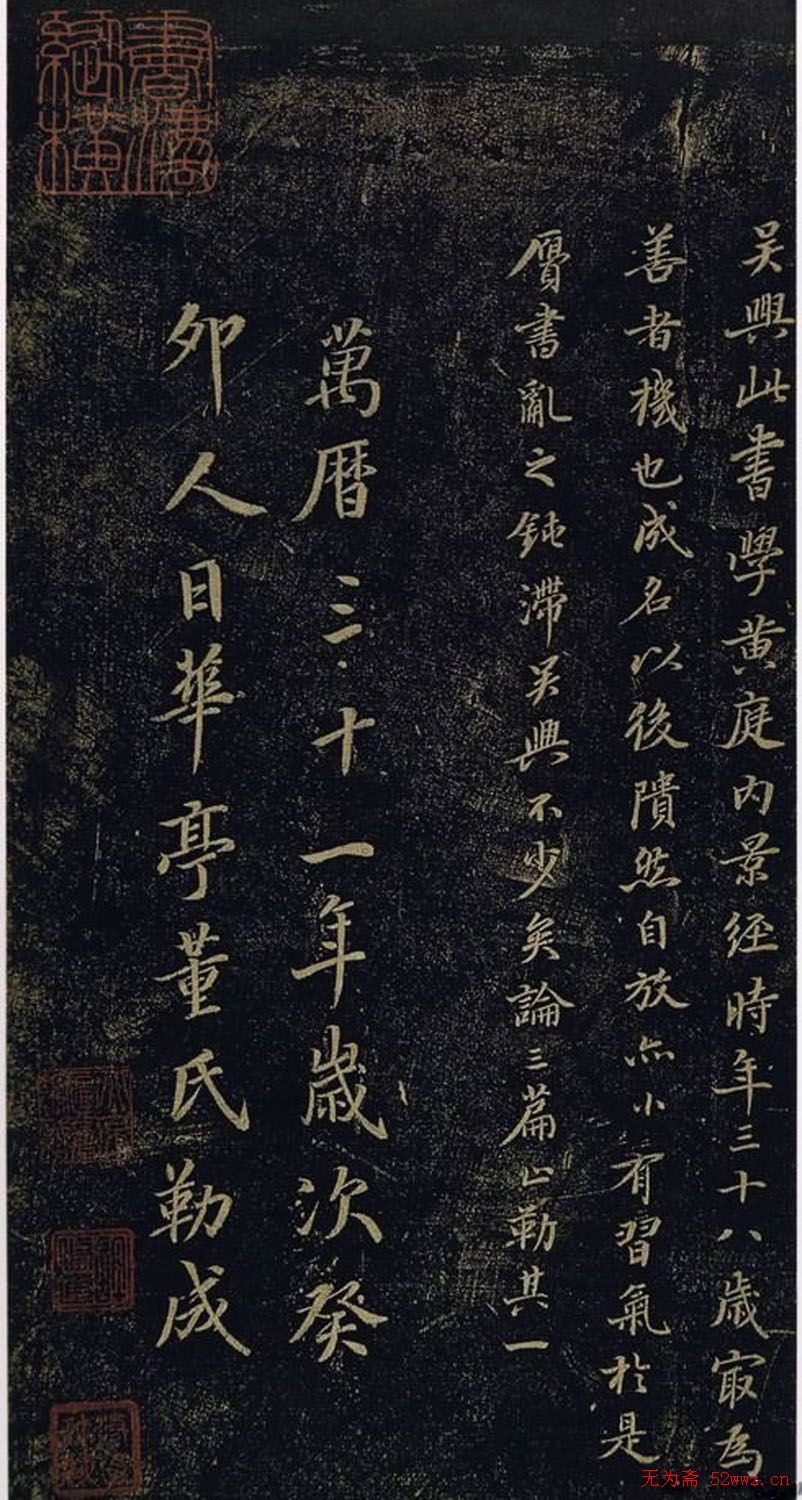 吴興此書學黄庭内景經時年三十八歲㝡為
善者機也成名以後隤然自放亦小有習氣於是
贗書亂之鈍滞吴興不少矣論三篇止勒其一
萬曆三十一年歲次癸
卯人日華亭董氏勒成
无为斋 52wwz.cn